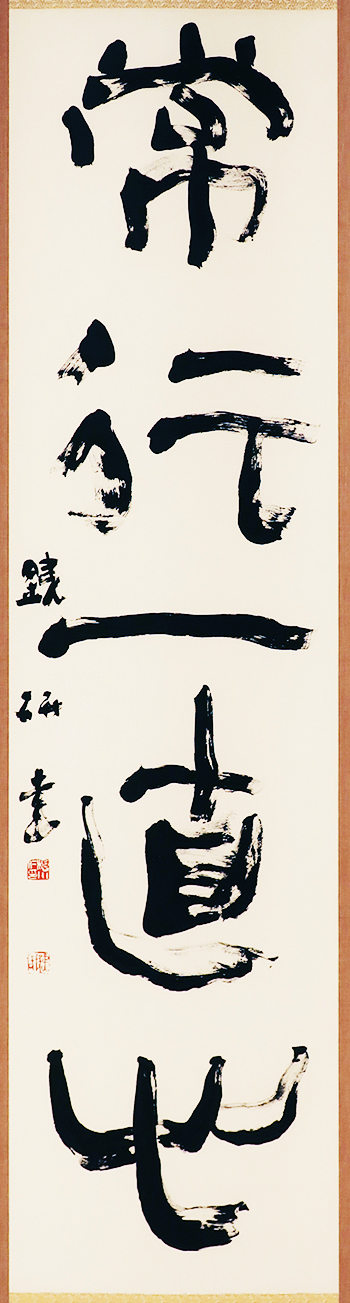 常行一直心
研書